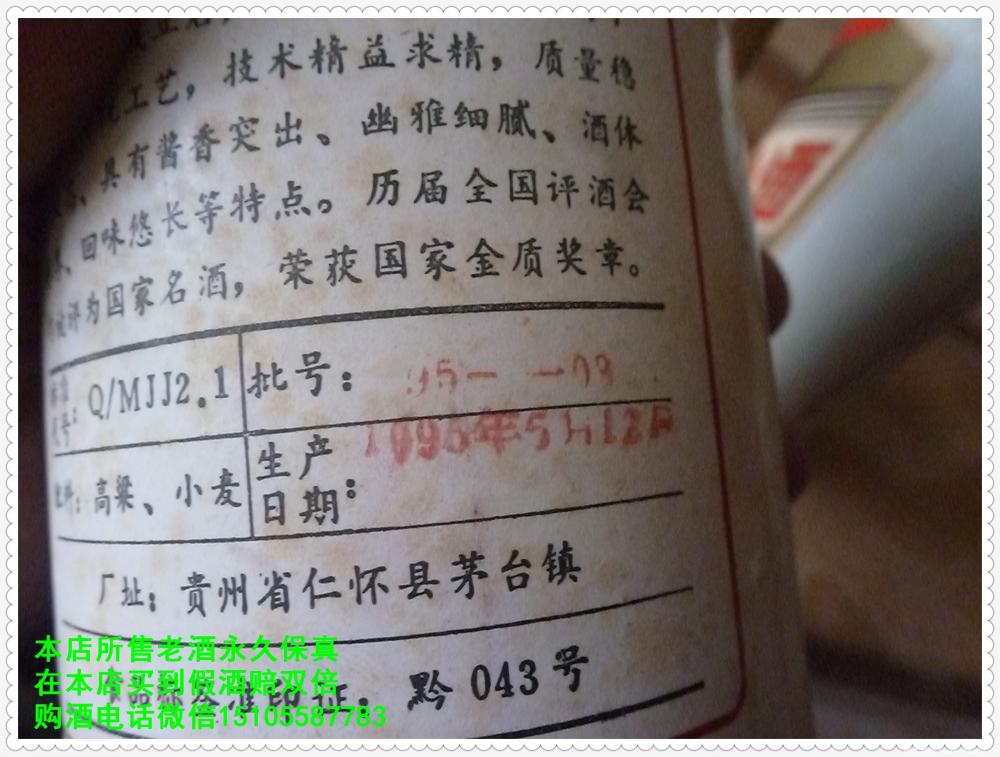 工艺，技术精益求精，质量稳
具有酱香突出、幽雅细腻、酒体
、回味悠长等特点。历届全国评酒会
被评为国家名酒，荣获国家金质奖章。
Q/MJJ2.1 批号： 95— —03
高粱、小麦 生产日期： 1995年5月12日
厂址：贵州省仁怀县茅台镇
准印证：黔043号
本店所售老酒永久保真
在本店买到假酒赔双倍
购酒电话微信15105587783